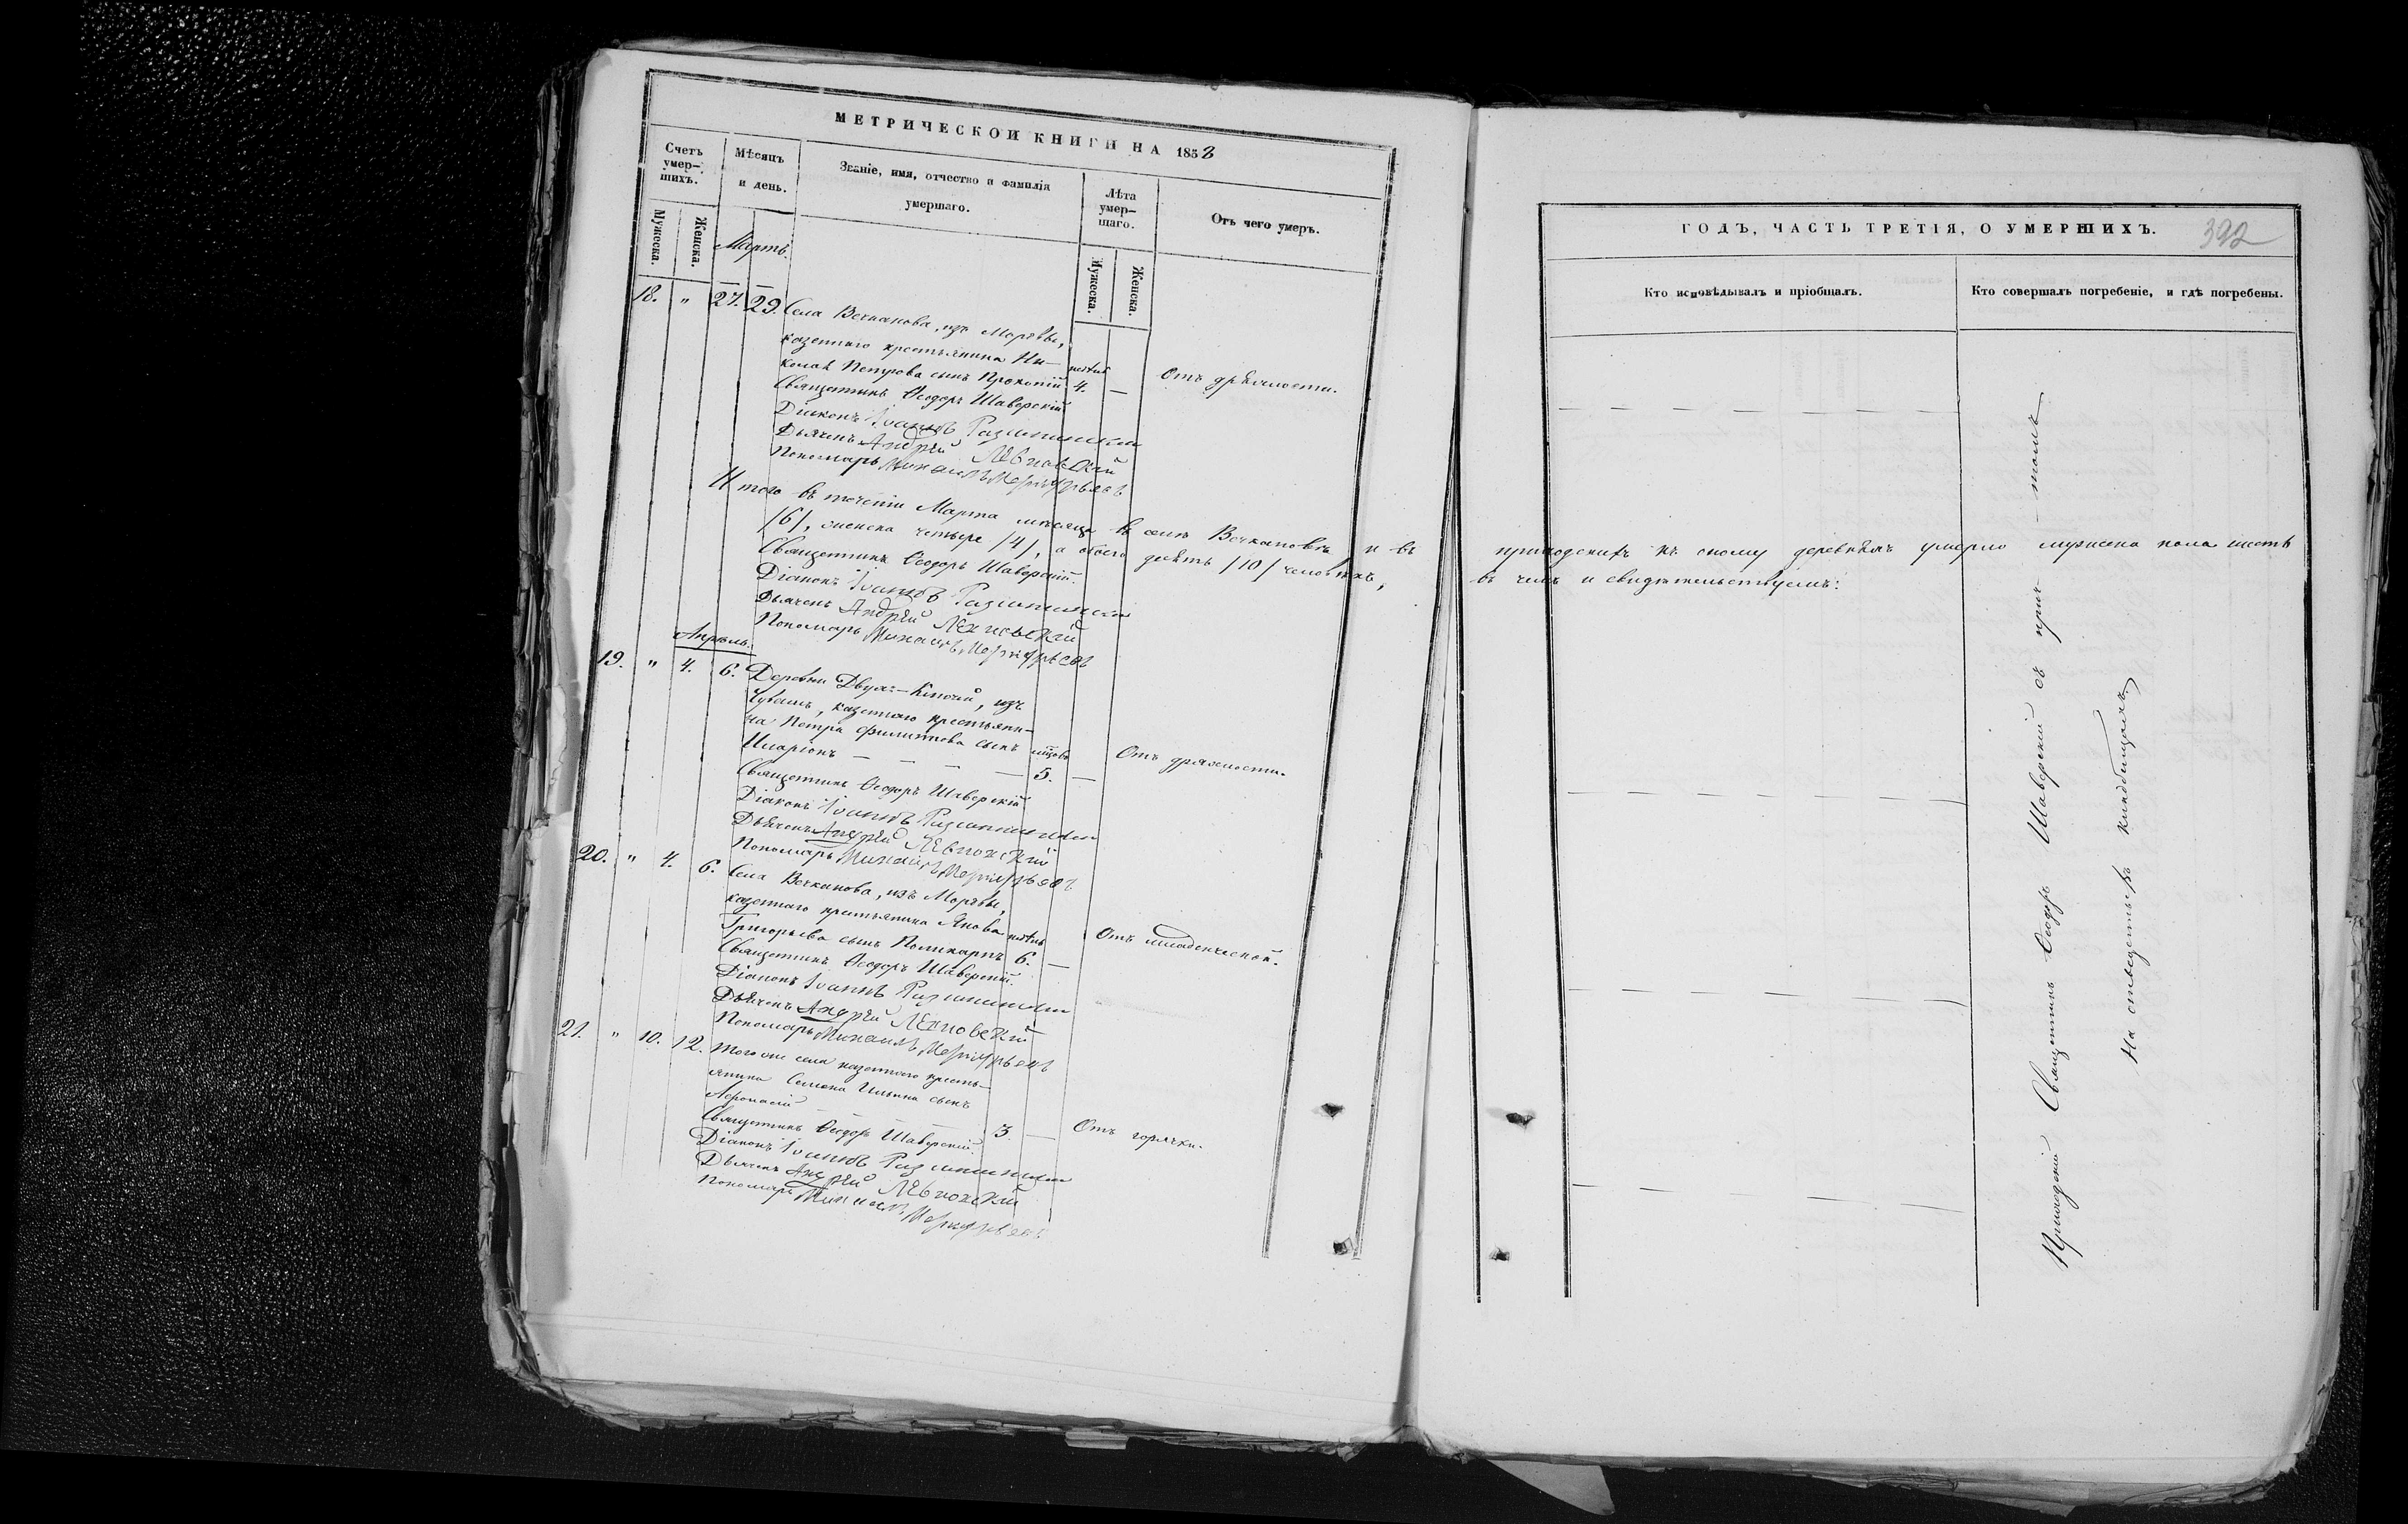 МЕТРИЧЕСКОЙ КНИГИ НА 1858
Счетъ умер-шихъ.
Мѣсяцъ и день.
Званіе, имя, отчество и фамилія умершаго.
Лѣта умер-шаго.
Отъ чего умеръ.
Мужеска.
Женска.
Мартъ.
Мужеска.
Женска.
18. " 27. 29. Села Вечканова, изъ Мордвы,
казеннаго крестьянина Ни-
колая Петрова сынъ Прокопій 4. — Отъ дряхлости.
Священникъ Ѳеодоръ Шаверскій
Діаконъ Іоаннъ
Дьячекъ Андрей
Пономарь Михаилъ Меркурьевъ
Итого въ теченіи Марта мѣсяца въ селѣ Вечкановѣ и въ приходскихъ къ оному деревняхъ умерло мужеска пола шесть
/6/, женска четыре /4/, а обоего десять /10/ человѣкъ, въ чемъ и свидѣтельствуемъ:
Священникъ Ѳеодоръ Шаверскій.
Діаконъ Іоаннъ
Дьячекъ Андрей
Пономарь Михаилъ Меркурьевъ
Апрѣль.
19. " 4. 6. Деревни Двухъ-Ключей, изъ
Чувашъ, казеннаго крестьяни-
на Петра Филиппова сынъ
Иларіонъ — — — — 5. — Отъ дряхлости.
Священникъ Ѳеодоръ Шаверскій
Діаконъ Іоаннъ
Дьячекъ Андрей
Пономарь Михаилъ Меркурьевъ
20. " 4. 6. Села Вечканова, изъ Мордвы,
казеннаго крестьянина Якова
Григорьева сынъ Поликарпъ 6. — Отъ младенческой.
Священникъ Ѳеодоръ Шаверскій.
Діаконъ Іоаннъ
Дьячекъ Андрей
Пономарь Михаилъ Меркурьевъ
21. " 10. 12. Того же села казеннаго кресть-
янина Семена Ильина сынъ
Аѳонасій — — — 3. — Отъ горячки.
Священникъ Ѳеодоръ Шаверскій.
Діаконъ Іоаннъ
Дьячекъ Андрей
Пономарь Михаилъ Меркурьевъ
ГОДЪ, ЧАСТЬ ТРЕТІЯ, О УМЕРШИХЪ.
392
Кто исповѣдывалъ и пріобщалъ.
Кто совершалъ погребеніе, и гдѣ погребены.
Приходскій Священникъ Ѳеодоръ Шаверскій съ прич-томъ
На отведенныхъ кладбищахъ.